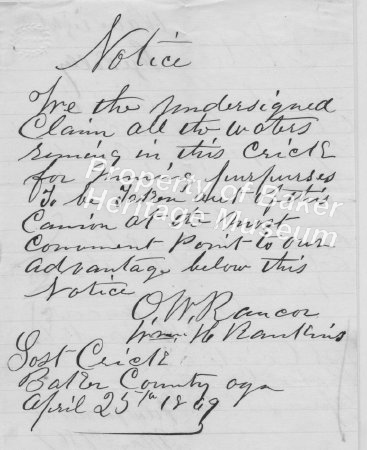 Notice
We the undersigned
Claim all the waters
runing in this Crick
for mining purpurses
To be Taken out of this
Canion at the most
Convment Point to our
advantage below this
Notice
O. W. Rancor
H Rankins
Lost Crick
Baker County ogn
April 25th 1869
Property of Baker
Heritage Museum